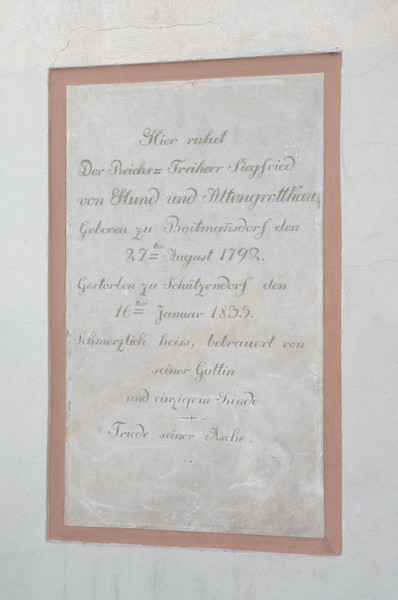 Hier ruhet
Der Reichs= Freiherr Siegfried
von Hund und Altengrottkau
Geboren zu Boitmañsdorf den
27ten August 1792.
Gestorben zu Schützendorf den
16ten Januar 1835.
Schmerzlich heiss, betrauert von
seiner Gattin
und einzigem Kinde
Friede seiner Asche.